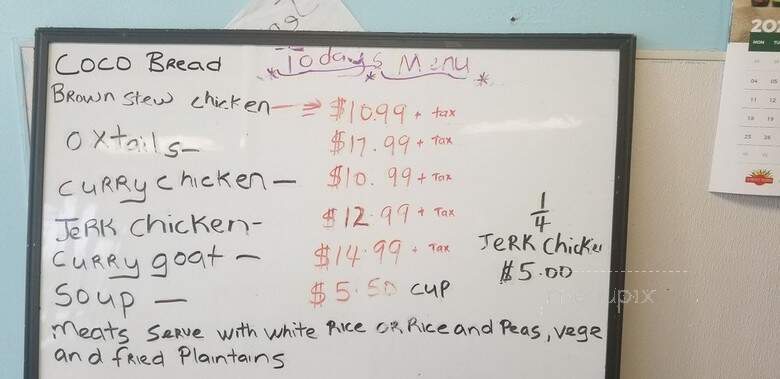 Today's Menu
Coco Bread
Brown stew chicken — $10.99 + tax
Oxtails — $17.99 + Tax
Curry chicken — $10.99 + Tax
Jerk chicken - $12.99 + Tax
Curry goat — $14.99 + Tax
Soup — $5.50 cup
1/4
Jerk Chicke
$5.00
Meats Serve with white Rice or Rice and Peas, vege
and fried Plaintains